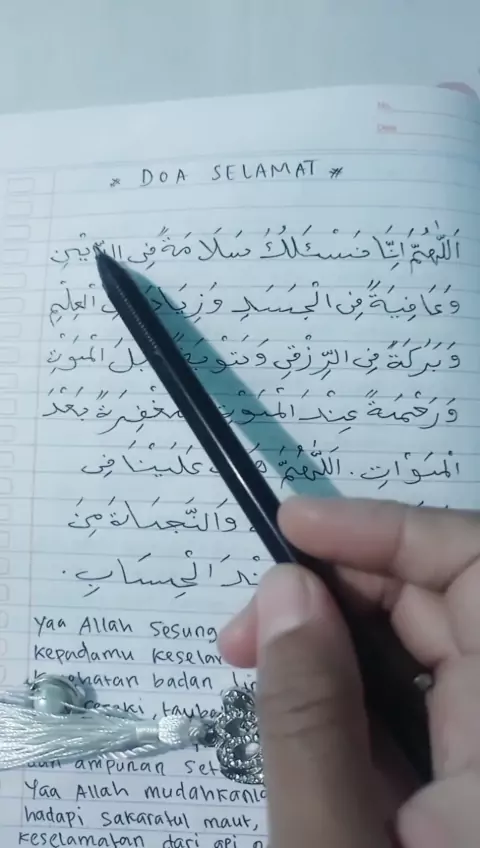 * DOA SELAMAT *
اَللّٰهُمَّ اِنَّا نَسْئَلُكَ سَلَامَةً فِى الدِّيْنِ
وَعَافِيَةً فِى الْجَسَدِ وَزِيَادَ الْعِلْمِ
وَبَرَكَةً فِى الرِّزْقِ وَتَوْبَةً الْمَوْتِ
وَرَحْمَةً عِنْدَ الْمَوْتِ مَغْفِرَةً بَعْدَ
الْمَوْتِ. اَللّٰهُمَّ عَلَيْنَا فِى
وَالنَّجَاةَ مِنَ
الْحِسَابِ.
Yaa Allah sesung
kepadamu kesela
badan
taub
ampunan set
Yaa Allah mudahkanla
hadapi sakaratul maut,
keselamatan dari api